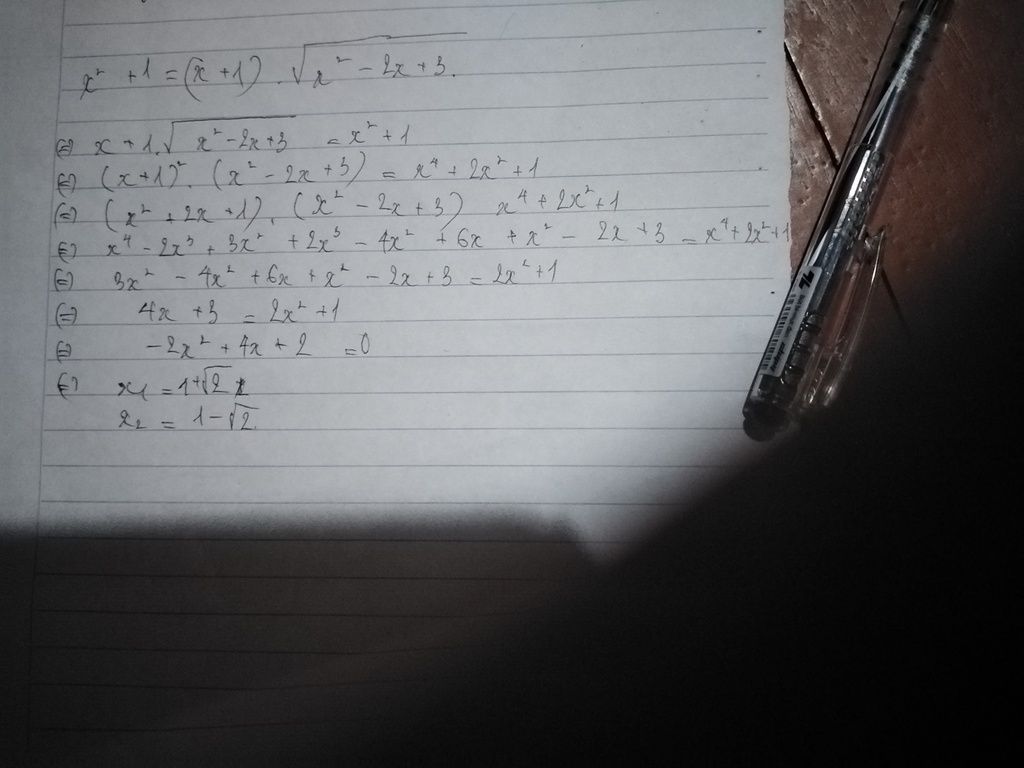 x² + 1 = (x + 1) . √x² - 2x + 3.
⇔ x + 1.√x² - 2x + 3 = x² + 1
⇔ (x + 1)² . (x² - 2x + 3) = x⁴ + 2x² + 1
⇔ (x² + 2x + 1) . (x² - 2x + 3) x⁴ + 2x² + 1
⇔ x⁴ - 2x³ + 3x² + 2x³ - 4x² + 6x + x² - 2x + 3 = x⁴ + 2x² + 1
⇔ 3x² - 4x² + 6x + x² - 2x + 3 = 2x² + 1
⇔ 4x + 3 = 2x² + 1
⇔ -2x² + 4x + 2 = 0
⇔ x₁ = 1 + √2
x₂ = 1 - √2